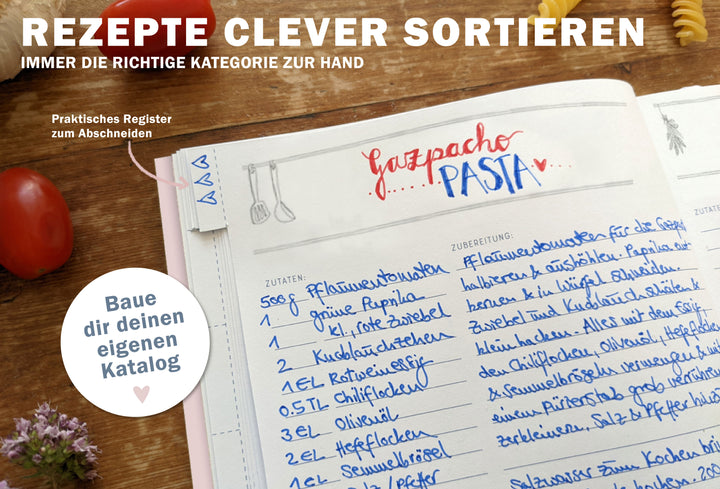 REZEPTE CLEVER SORTIEREN
IMMER DIE RICHTIGE KATEGORIE ZUR HAND
Praktisches Register
zum Abschneiden
Gazpacho
PASTA
Baue
dir deinen
eigenen
Katalog
ZUTATEN:
500g Pflaumentomaten
1 grüne Paprika
1 kl., rote Zwiebel
2 Knoblauchzehen
1 EL Rotweinessig
0.5 TL Chiliflocken
3 EL Olivenöl
2 EL Hefeflocken
1 EL Semmelbrösel
Salz/Pfeffer
ZUBEREITUNG:
Pflaumentomaten für die
halbieren & aushöhlen. Paprika ent-
kernen & in Würfel schneiden.
Zwiebel und Knoblauch schälen &
klein hacken. Alles mit dem Essig,
den Chiliflocken, Olivenöl, Hefeflocken
& Semmelbröseln vermengen & mit
einem Pürierstab grob
zerkleinern. Salz & Pfeffer
Salzwasser zum Kochen
ZUTATE